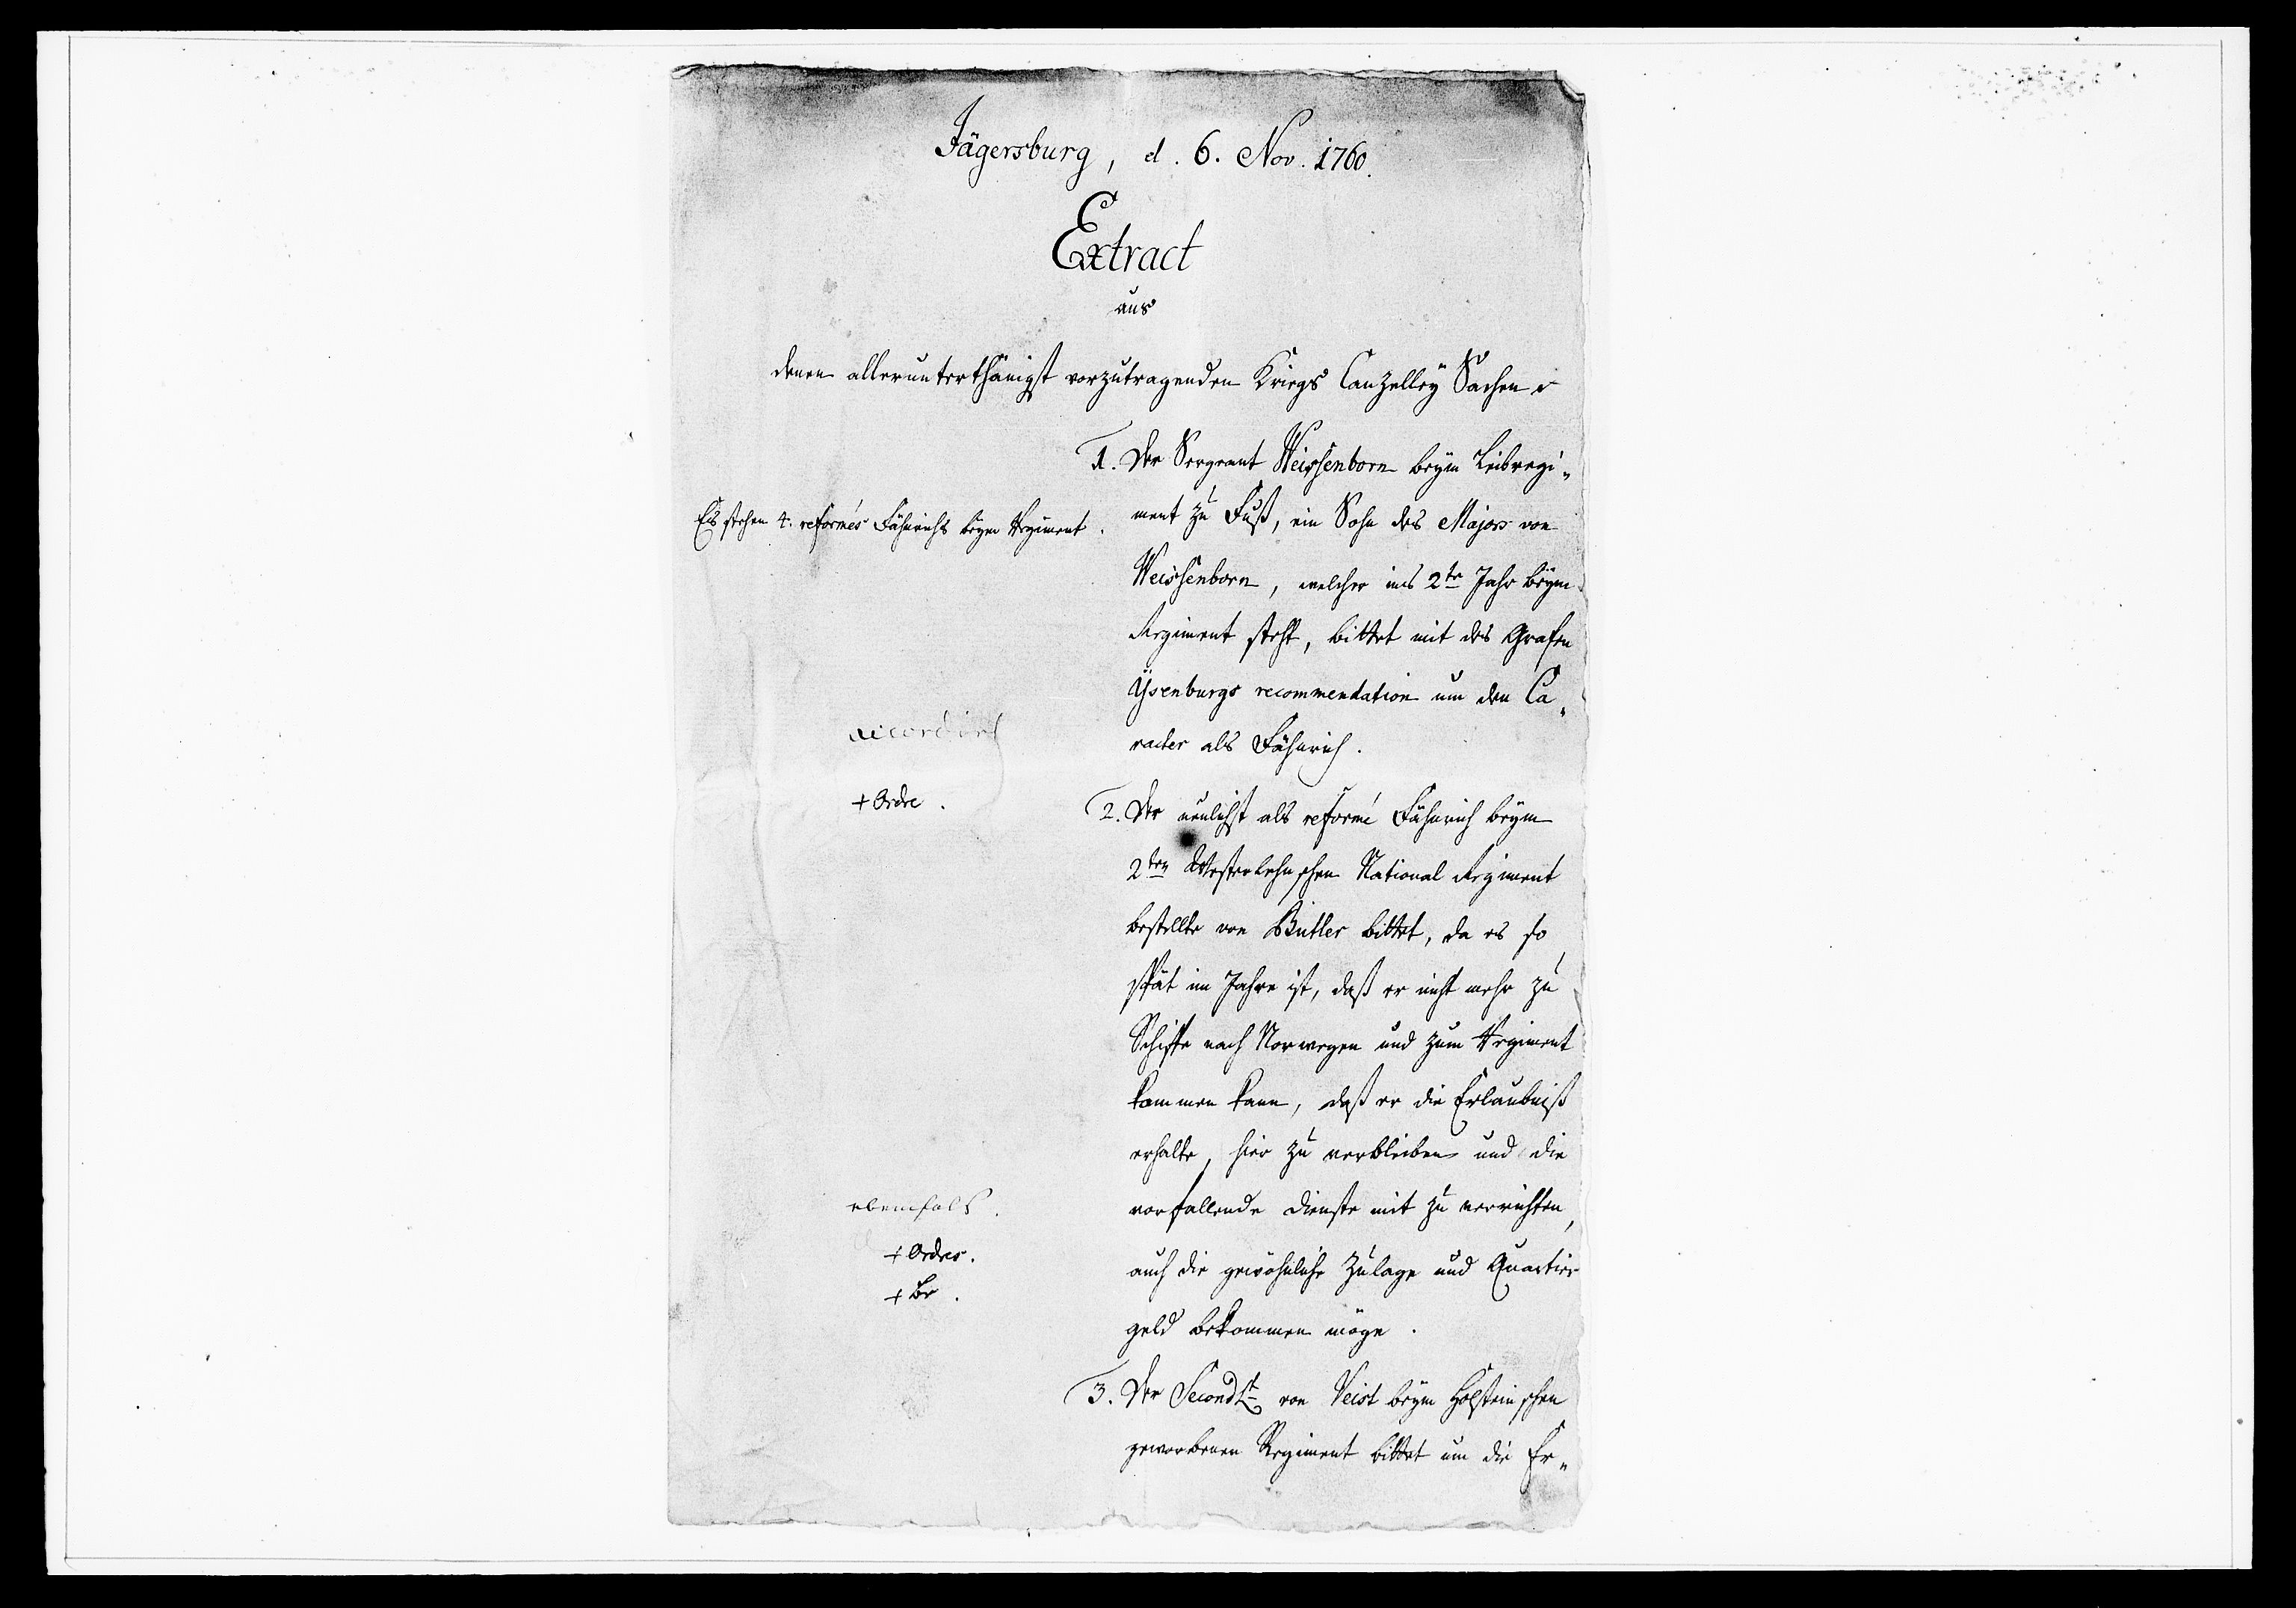 Jägersburg, d. 6. Nov. 1760.
Extract
aus
denen allerunterthänigst vorzutragenden Kriegs Canzelley Sachen
1. Der Sergeant Weissenborn beÿm Leibregi„
ment zu Fuß, ein Sohn des Majors von
Weissenborn, welcher ins 2te Jahr beÿm
Regiment steht, bittet mit des Grafen
Ÿsenburgs recommendation um den Ca„
racter als Fähnrich.
Es stehen 4. reformés Fähnrichs beÿm Regiment.
accordirt
+ Ordre.
2. Der neulichst als reformé Fähnrich beÿm
2ten Westerlehnschen National Regiment
bestellte von Butler bittet, da es so
spät im Jahre ist, daß er nicht mehr zu
Schiffe nach Norwegen und zum Regiment
kommen kann, daß er die Erlaubniß
erhalte, hier zu verbleiben und die
vorfallende Dienste mit zu verrichten,
auch die gewöhnliche Zulage und Quartier
geld bekommen möge.
ebenfals.
+ Ordres.
+ Br.
3. Der Second Lt von Veist beÿm Holsteinschen
geworbenen Regiment bittet um die Er„